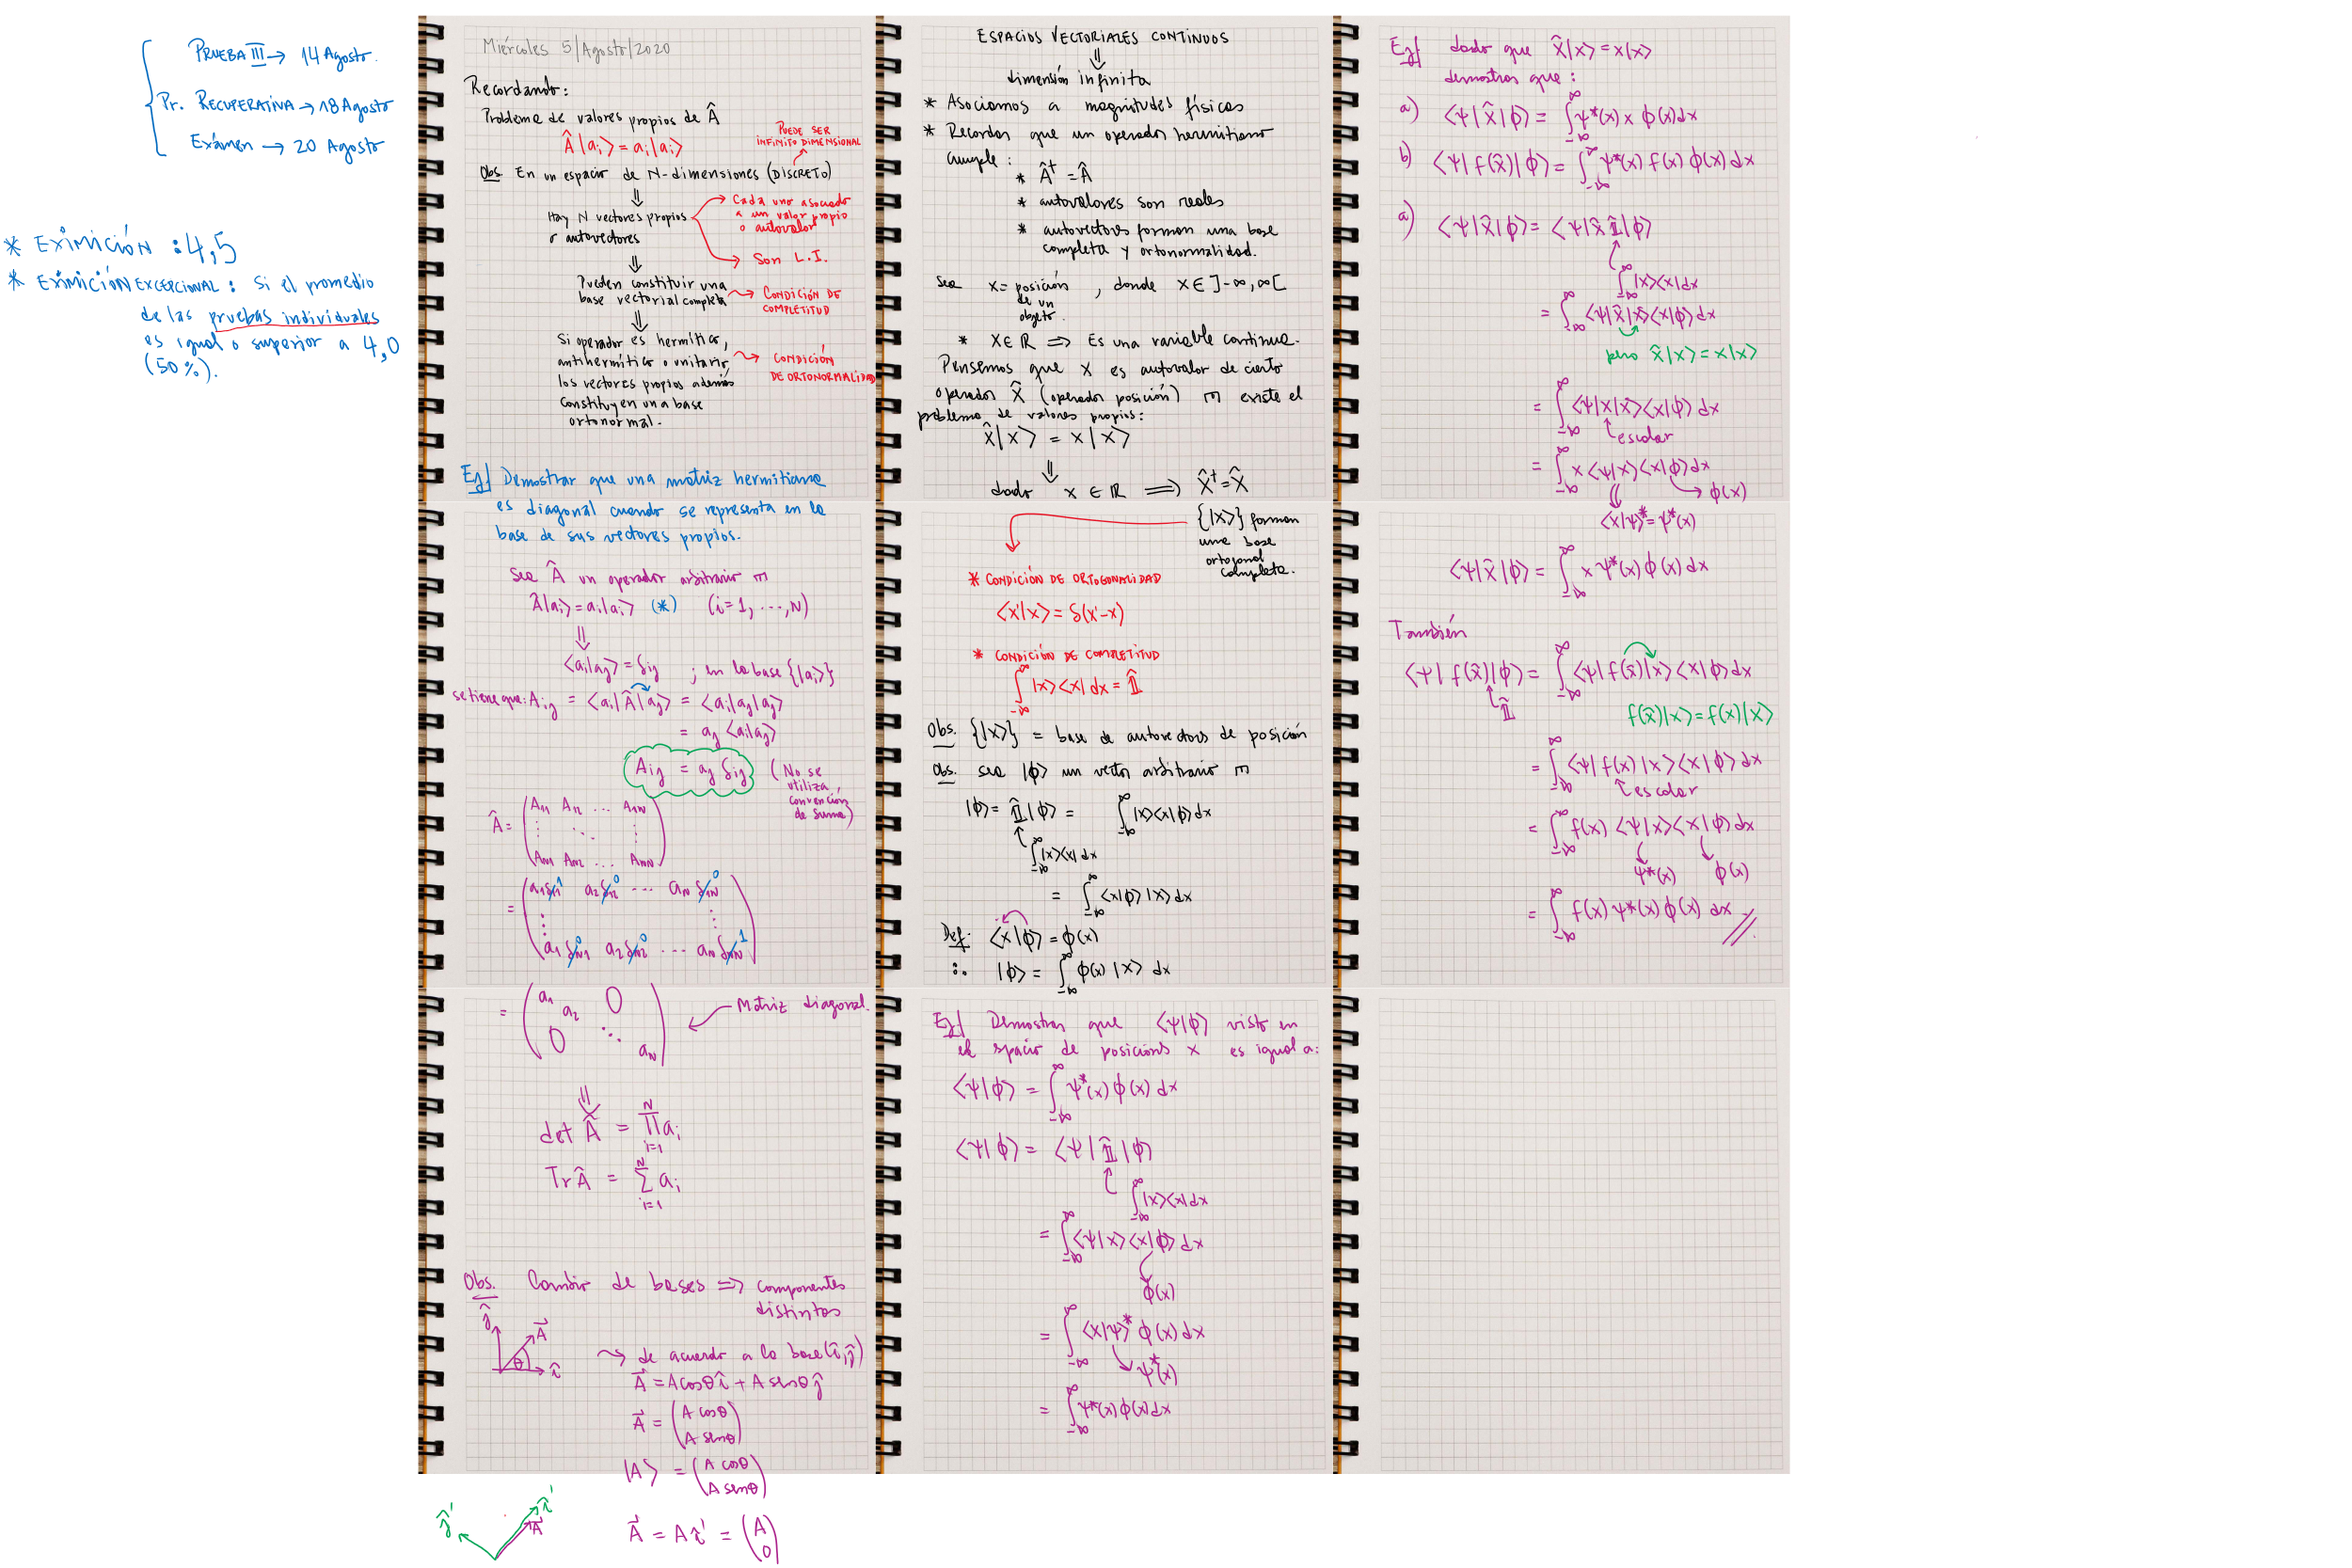 PRUEBA III → 14 Agosto.
Pr. RECUPERATIVA → 18 Agosto
Exámen → 20 Agosto
* EXIMICIÓN : 4,5
* EXIMICIÓN EXCEPCIONAL : Si el promedio
de las pruebas individuales
es igual o superior a 4,0
(50%).
Miércoles 5/Agosto/2020
Recordando:
Problema de valores propios de Â
Â|aᵢ⟩ = aᵢ|aᵢ⟩
PUEDE SER
INFINITO DIMENSIONAL
Obs En un espacio de N-dimensiones (DISCRETO)
⇓
Hay N vectores propios
o autovectores
Cada uno asociado
a un valor propio
o autovalor
Son L.I.
⇓
Pueden constituir una
base vectorial completa
CONDICIÓN DE
COMPLETITUD
⇓
Si operador es hermítico,
antihermítico o unitario,
los vectores propios además
constituyen una base
ortonormal.
CONDICIÓN
DE ORTONORMALIDAD
Ej/ Demostrar que una matriz hermitiana
es diagonal cuando se representa en la
base de sus vectores propios.
Sea Â un operador arbitrario
Â|aᵢ⟩ = aᵢ|aᵢ⟩ (*) (i=1, ..., N)
⇓
⟨aᵢ|aⱼ⟩ = δᵢⱼ ; en la base {|aᵢ⟩}
se tiene que: Aᵢⱼ = ⟨aᵢ|Â|aⱼ⟩ = ⟨aᵢ|aⱼ|aⱼ⟩
= aⱼ ⟨aᵢ|aⱼ⟩
Aᵢⱼ = aⱼ δᵢⱼ
(No se
utiliza
convención
de suma)
Â = (A₁₁ A₁₂ ... A₁N
⋮ ⋱ ⋮
AN₁ AN₂ ... ANN)
= (a₁δ₁₁ 1 a₂δ₁₂ 0 ... aNδ₁N 0
⋮ ⋮
a₁δN₁ 0 a₂δN₂ 0 ... aNδNN 1)
= (a₁ 0
a₂
0 ⋱
aN)
← Matriz diagonal.
⇓
det Â = ∏ᵢ₌₁ᴺ aᵢ
Tr Â = ∑ᵢ₌₁ᴺ aᵢ
Obs. Cambio de bases ⇒ componentes
distintos
ĵ
A⃗
θ
î
de acuerdo a la base (î, ĵ)
A⃗ = A cosθ î + A senθ ĵ
A⃗ = (A cosθ
A senθ)
|A⟩ = (A cosθ
A senθ)
ĵ'
î'
A⃗
A⃗ = A î' = (A
0)
ESPACIOS VECTORIALES CONTINUOS
⇓
dimensión infinita
* Asociamos a magnitudes físicas
* Recordar que un operador hermitiano
cumple :
* Â† = Â
* autovalores son reales
* autovectores forman una base
completa y ortonormalidad.
Sea x = posición , donde x ∈ ]-∞, ∞[
de un
objeto.
* x ∈ ℝ ⇒ Es una variable continua.
Pensemos que x es autovalor de cierto
operador X̂ (operador posición) existe el
problema de valores propios:
x̂|x⟩ = x|x⟩
⇓
dado x ∈ ℝ ⇒ X̂† = X̂
{|x⟩} forman
una base
ortogonal
completa.
* CONDICIÓN DE ORTOGONALIDAD
⟨x'|x⟩ = δ(x'-x)
* CONDICIÓN DE COMPLETITUD
∫₋∞^∞ |x⟩⟨x| dx = 𝟙̂
Obs. {|x⟩} = base de autovectores de posición
Obs. sea |ϕ⟩ un vector arbitrario
|ϕ⟩ = 𝟙̂|ϕ⟩ = ∫₋∞^∞ |x⟩⟨x|ϕ⟩ dx
∫₋∞^∞ |x⟩⟨x| dx
= ∫₋∞^∞ ⟨x|ϕ⟩ |x⟩ dx
Def: ⟨x|ϕ⟩ = ϕ(x)
∴ |ϕ⟩ = ∫₋∞^∞ ϕ(x) |x⟩ dx
Ej/ Demostrar que ⟨Ψ|ϕ⟩ visto en
el spacio de posicions x es igual a:
⟨Ψ|ϕ⟩ = ∫₋∞^∞ Ψ*(x) ϕ(x) dx
⟨Ψ|ϕ⟩ = ⟨Ψ|𝟙̂|ϕ⟩
∫₋∞^∞ |x⟩⟨x| dx
= ∫₋∞^∞ ⟨Ψ|x⟩⟨x|ϕ⟩ dx
ϕ(x)
= ∫₋∞^∞ ⟨x|Ψ⟩* ϕ(x) dx
Ψ*(x)
= ∫₋∞^∞ Ψ*(x) ϕ(x) dx
Ej/ dado que x̂|x⟩ = x|x⟩
demostrar que :
a) ⟨Ψ|x̂|ϕ⟩ = ∫₋∞^∞ Ψ*(x) x ϕ(x) dx
b) ⟨Ψ|f(x̂)|ϕ⟩ = ∫₋∞^∞ Ψ*(x) f(x) ϕ(x) dx
a) ⟨Ψ|x̂|ϕ⟩ = ⟨Ψ|x̂ 𝟙̂|ϕ⟩
∫₋∞^∞ |x⟩⟨x| dx
= ∫₋∞^∞ ⟨Ψ|x̂|x⟩⟨x|ϕ⟩ dx
pero x̂|x⟩ = x|x⟩
= ∫₋∞^∞ ⟨Ψ|x|x⟩⟨x|ϕ⟩ dx
escalar
= ∫₋∞^∞ x ⟨Ψ|x⟩⟨x|ϕ⟩ dx
ϕ(x)
⟨x|Ψ⟩* = Ψ*(x)
⟨Ψ|x̂|ϕ⟩ = ∫₋∞^∞ x Ψ*(x) ϕ(x) dx
También
⟨Ψ|f(x̂)|ϕ⟩ = ∫₋∞^∞ ⟨Ψ|f(x̂)|x⟩ ⟨x|ϕ⟩ dx
𝟙̂
f(x̂)|x⟩ = f(x)|x⟩
= ∫₋∞^∞ ⟨Ψ|f(x)|x⟩⟨x|ϕ⟩ dx
escalar
= ∫₋∞^∞ f(x) ⟨Ψ|x⟩⟨x|ϕ⟩ dx
Ψ*(x) ϕ(x)
= ∫₋∞^∞ f(x) Ψ*(x) ϕ(x) dx //